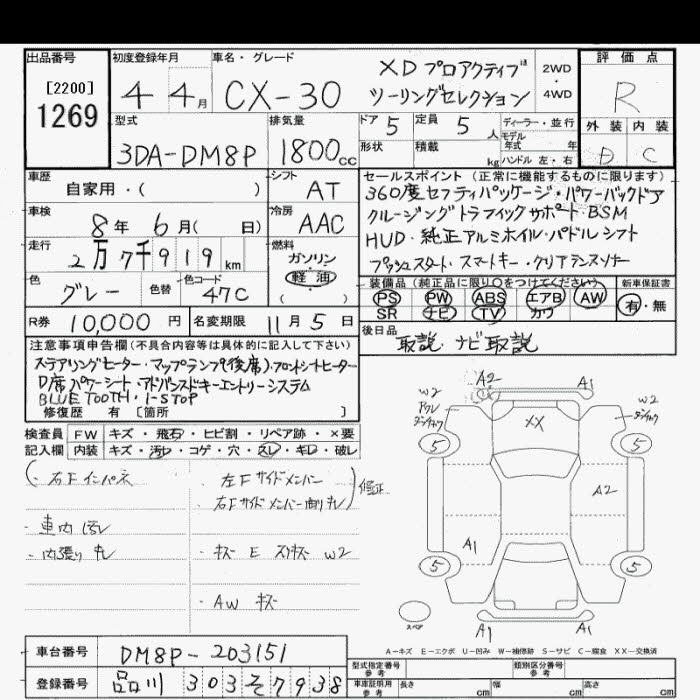 出品番号
[2200]
1269
初度登録年月
4 4月
車名・グレード
CX-30
XD プロアクティブ
ツーリングセレクション
2WD
・
4WD
評価点
R
外装 内装
D C
型式
3DA-DM8P
排気量
1800cc
ドア 5
定員 5人
形状
積載 kg
ディーラー・並行
モデル
年式 年
ハンドル 左・右
車歴
自家用・( )
シフト
AT
車検
8年 6月( 日)
冷房
AAC
走行
2万7千919km
燃料
ガソリン・
軽油
( )
色
グレー
色替
色コード
47C
セールスポイント(正常に機能するものに限ります)
360度セフティパッケージ・パワーバックドア
クルージングトラフィックサポート・BSM
HUD・純正アルミホイル・パドルシフト
プッシュスタート・スマートキー・クリアランスソナー
装備品(純正品に限り○をつけてください)
PS PW ABS エアB AW
SR ナビ TV カワ
新車保証書
有・無
R券 10,000円
名変期限 11月5日
後日品
取説・ナビ取説
注意事項申告欄(不具合内容等は具体的に記入して下さい)
ステアリングヒーター・マップランプ(後席)・フロントシートヒーター
D席パワーシート・アドバンスドキーエントリーシステム
BLUE TOOTH・i-STOP
修復歴 有 [箇所 ]
検査員 FW キズ・飛石・ヒビ割・リペア跡・×要
記入欄 内装 キズ・汚レ・コゲ・穴・スレ・キレ・破レ
右Fインパネ
左Fサイドメンバー
右Fサイドメンバー曲り
修正
・車内汚レ
・内張りキレ
・キズ E スリキズ W2
・AW キズ
A2
A1
W2
W2
XX
5
5
A2
A1
5
5
スペア
A1
A1
A-キズ E-エクボ U-凹み W-補修跡 S-サビ C-腐食 XX-交換済
車台番号 DM8P-203151
登録番号 品川 303 そ 7938
型式指定番号
参考
類別区分番号
参考
車庫証明用
参考
長さ cm 幅 cm 高さ cm